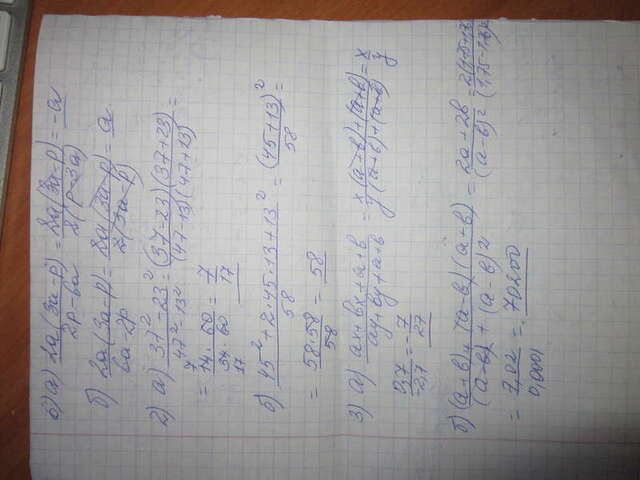 6) а) 2a(3a-p)/2p-6a = 2a(3a-p)/2(p-3a) = -a
б) 2a(3a-p)/6a-2p = 2a(3a-p)/2(3a-p) = a
2) а) 37²-23²/47²-13² = (37-23)(37+23)/(47-13)(47+13) =
= 14·60/34·60 = 7/17
б) 45²+2·45·13+13²/58 = (45+13)²/58 =
= 58·58/58 = 58
3) а) ax+bx+a+b/ay+by+a+b = x(a+b)+(a+b)/y(a+b)+(a+b) = x/y
= -7/27
б) (a+b)/(a-b) + (a-b)(a+b)/(a-b)² = 2a+2b/(a-b)² =
= 7,02/0,0001 = 70200